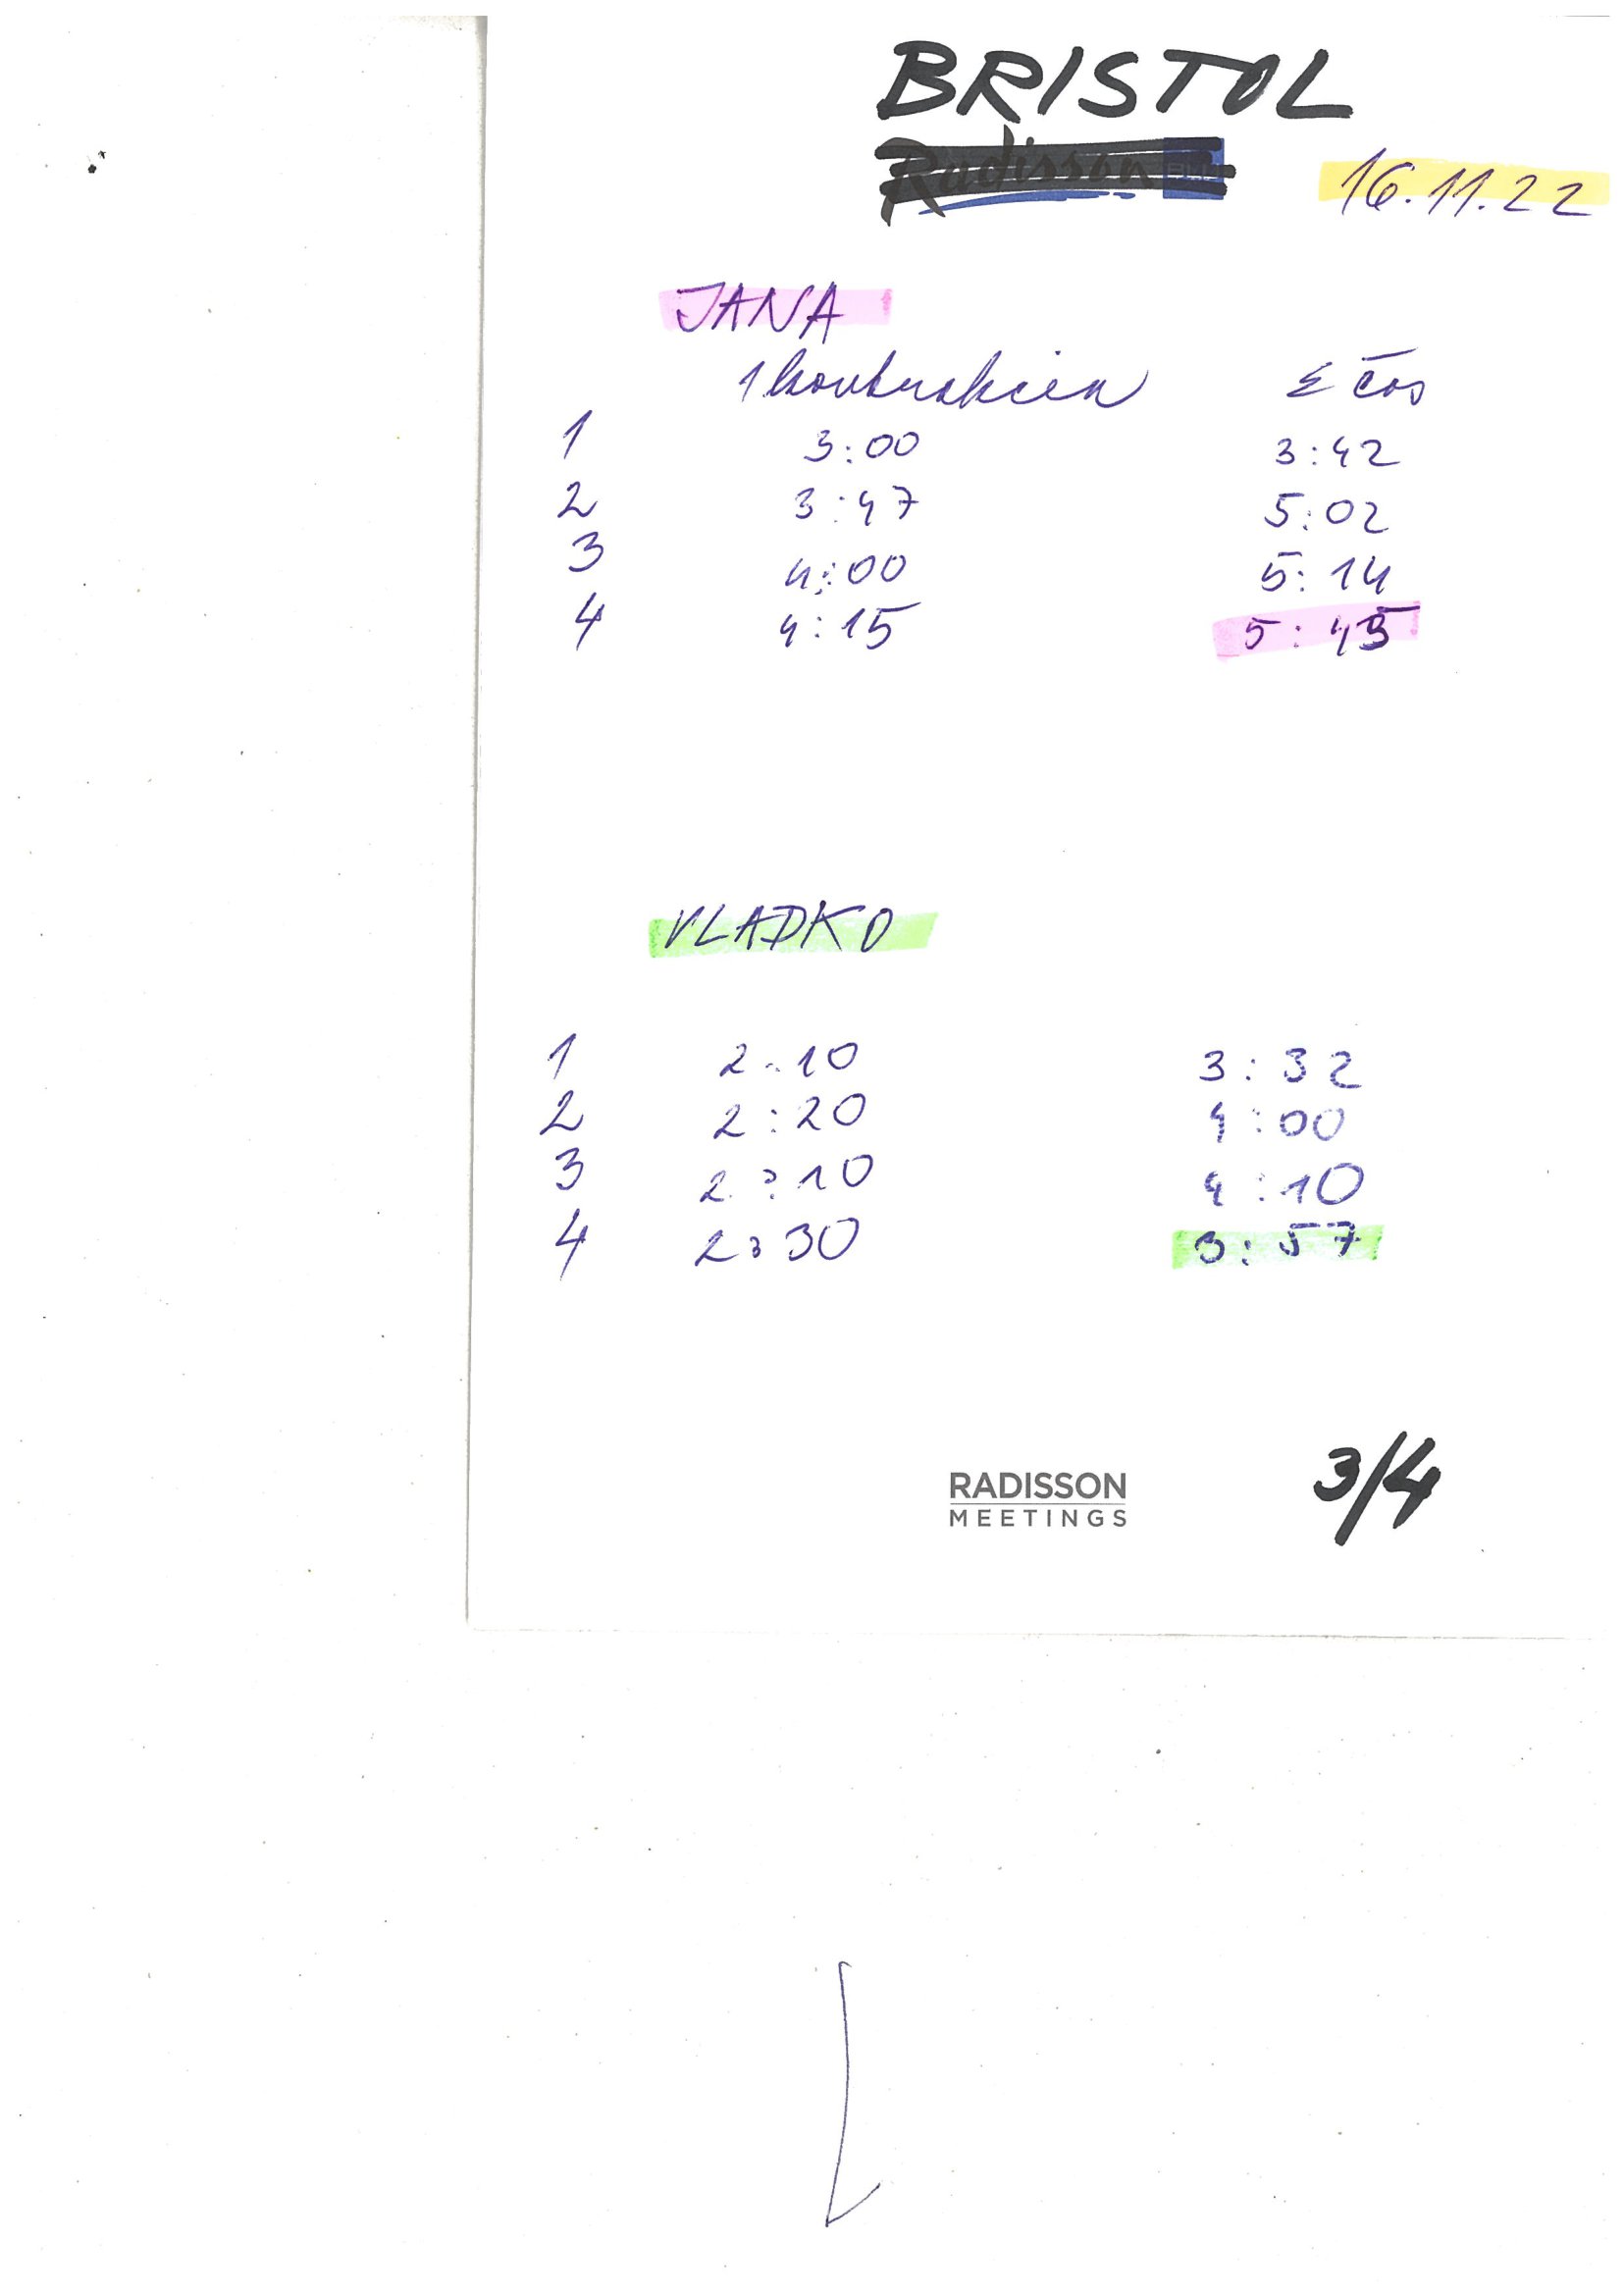 BRISTOL
Radisson
16.11.22
JANA
1 kontrakcia Σ čas
1 3:00 3:42
2 3:47 5:02
3 4:00 5:14
4 4:15 5:45
VLADKO
1 2:10 3:32
2 2:20 4:00
3 2:10 4:10
4 2:30 3:57
RADISSON
MEETINGS
3/4